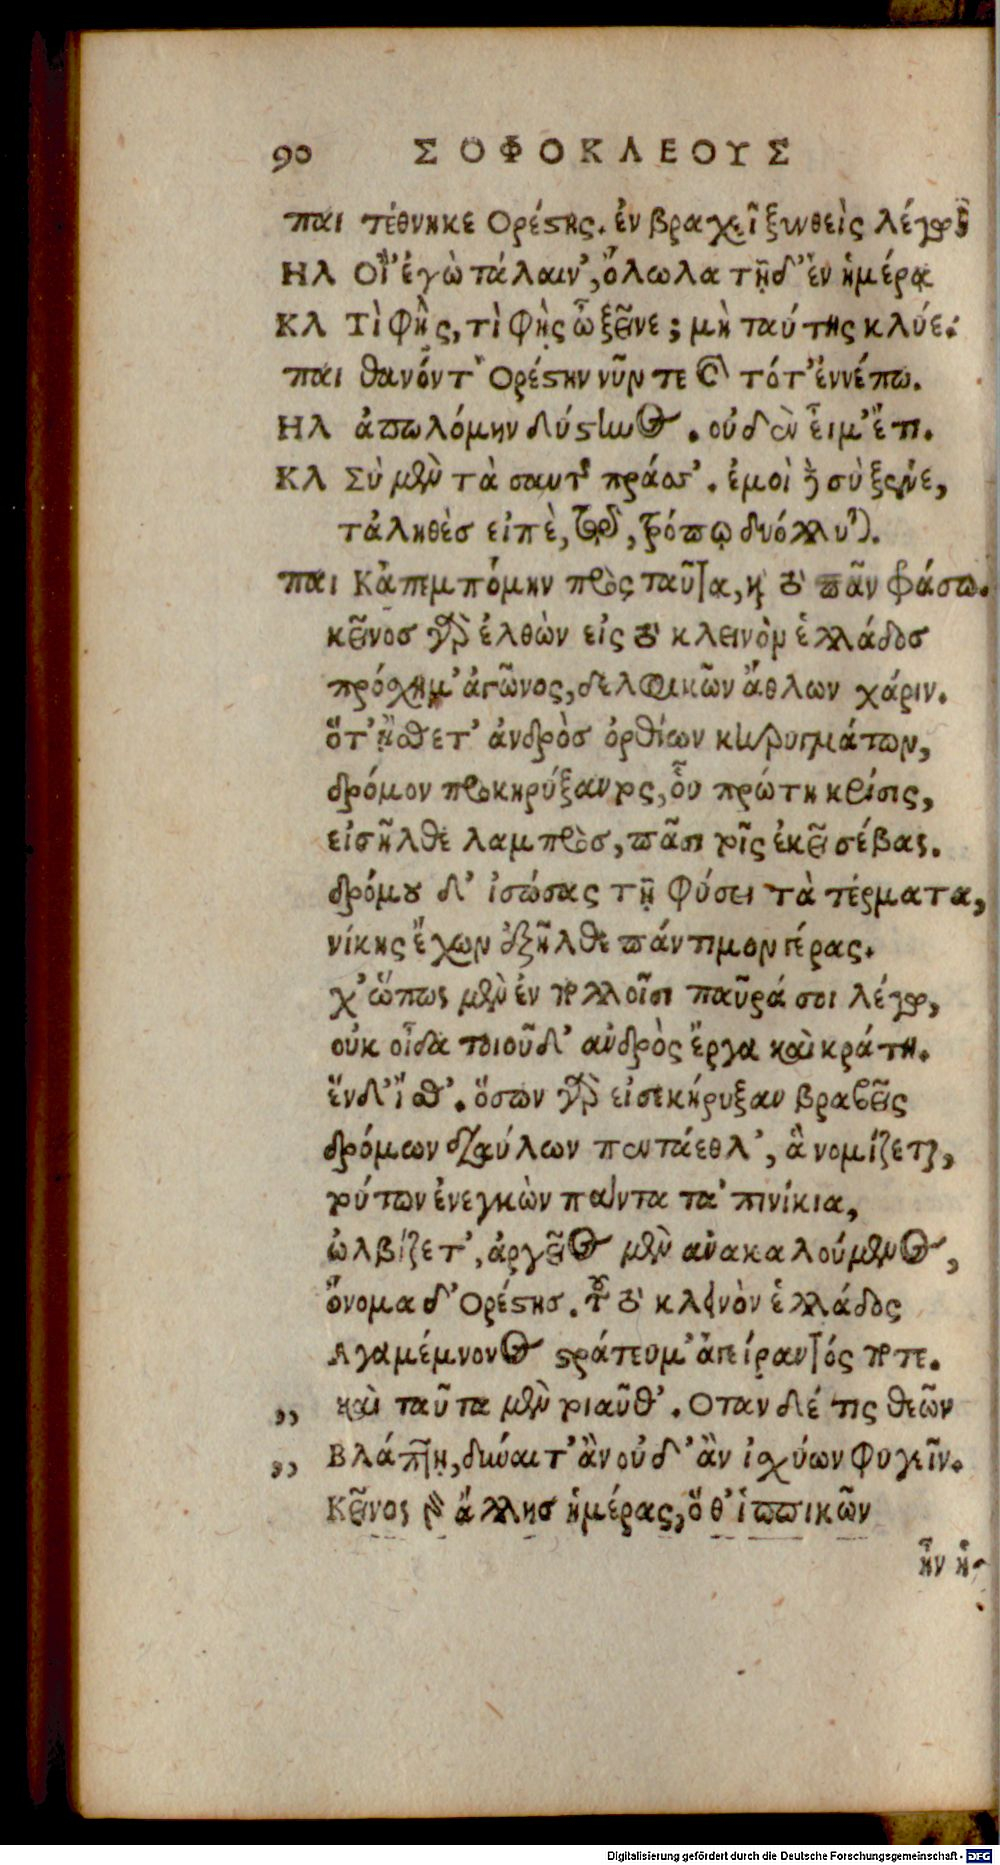 90 ΣΟΦΟΚΛΕΟΥΣ
παι τέθνηκε Ορέστης. ἐν βραχεῖ ξυνθεὶς λέγω
Ηλ Οἲ'ἐγὼ τάλαιν', ὄλωλα τῇδ' ἐν ἡμέρᾳ
Κλ Τὶ φῂς, τὶ φῂς ὦ ξεῖνε; μὴ ταύτης κλύε.
παι θανόντ' Ορέστην νῦν τε καὶ τότ' ἐννέπω.
Ηλ ἀπωλόμην δύστηνος. οὐδέν εἶμ' ἔτι.
Κλ Σὺ μὲν τὰ σαυτῆς πράσσ'. ἐμοὶ δὲ σὺ ξεῖνε,
τἀληθὲς εἰπὲ, τῷ τρόπῳ διόλλυται.
παι Κἀπεμπόμην πρὸς ταῦτα, καὶ τὸ πᾶν φράσω.
κεῖνος γὰρ ἐλθὼν εἰς τὸ κλεινὸν ἑλλάδος
πρόσχημ' ἀγῶνος, δελφικῶν ἄθλων χάριν.
ὅτ' ᾔσθετ' ἀνδρὸς ὀρθίων κηρυγμάτων,
δρόμον προκηρύξαντος, οὗ πρώτη κρίσις,
εἰσῆλθε λαμπρὸς, πᾶσι τοῖς ἐκεῖ σέβας.
δρόμου δ' ἰσώσας τῇ φύσει τὰ τέρματα,
νίκης ἔχων ἐξῆλθε πάντιμον γέρας.
χ' ὥπως μὲν ἐν πολλοῖσι παῦρά σοι λέγω,
οὐκ οἶδα τοιοῦδ' ἀνδρὸς ἔργα καὶ κράτη.
ἓν δ' ἴσθ'. ὅσων γὰρ εἰσεκήρυξαν βραβεῖς
δρόμων διαύλων πεντάεθλ', ἃ νομίζεται,
τούτων ἐνεγκὼν πάντα τἀ'πινίκια,
ὠλβίζετ', ἀργεῖος μὲν ἀνακαλούμενος,
ὄνομα δ' Ορέστης. τοῦ τὸ κλεινὸν ἑλλάδος
Αγαμέμνονος στράτευμ' ἀγείραντός ποτε.
,, καὶ ταῦτα μὲν τοιαῦθ'. Οταν δέ τις θεῶν
,, Βλάπτῃ, δύναιτ' ἂν οὐδ' ἂν ἰσχύων φυγεῖν.
Κεῖνος γὰρ ἄλλης ἡμέρας, ὅθ' ἱππικῶν
ἦν ἡ-
Digitalisierung gefördert durch die Deutsche Forschungsgemeinschaft - DFG